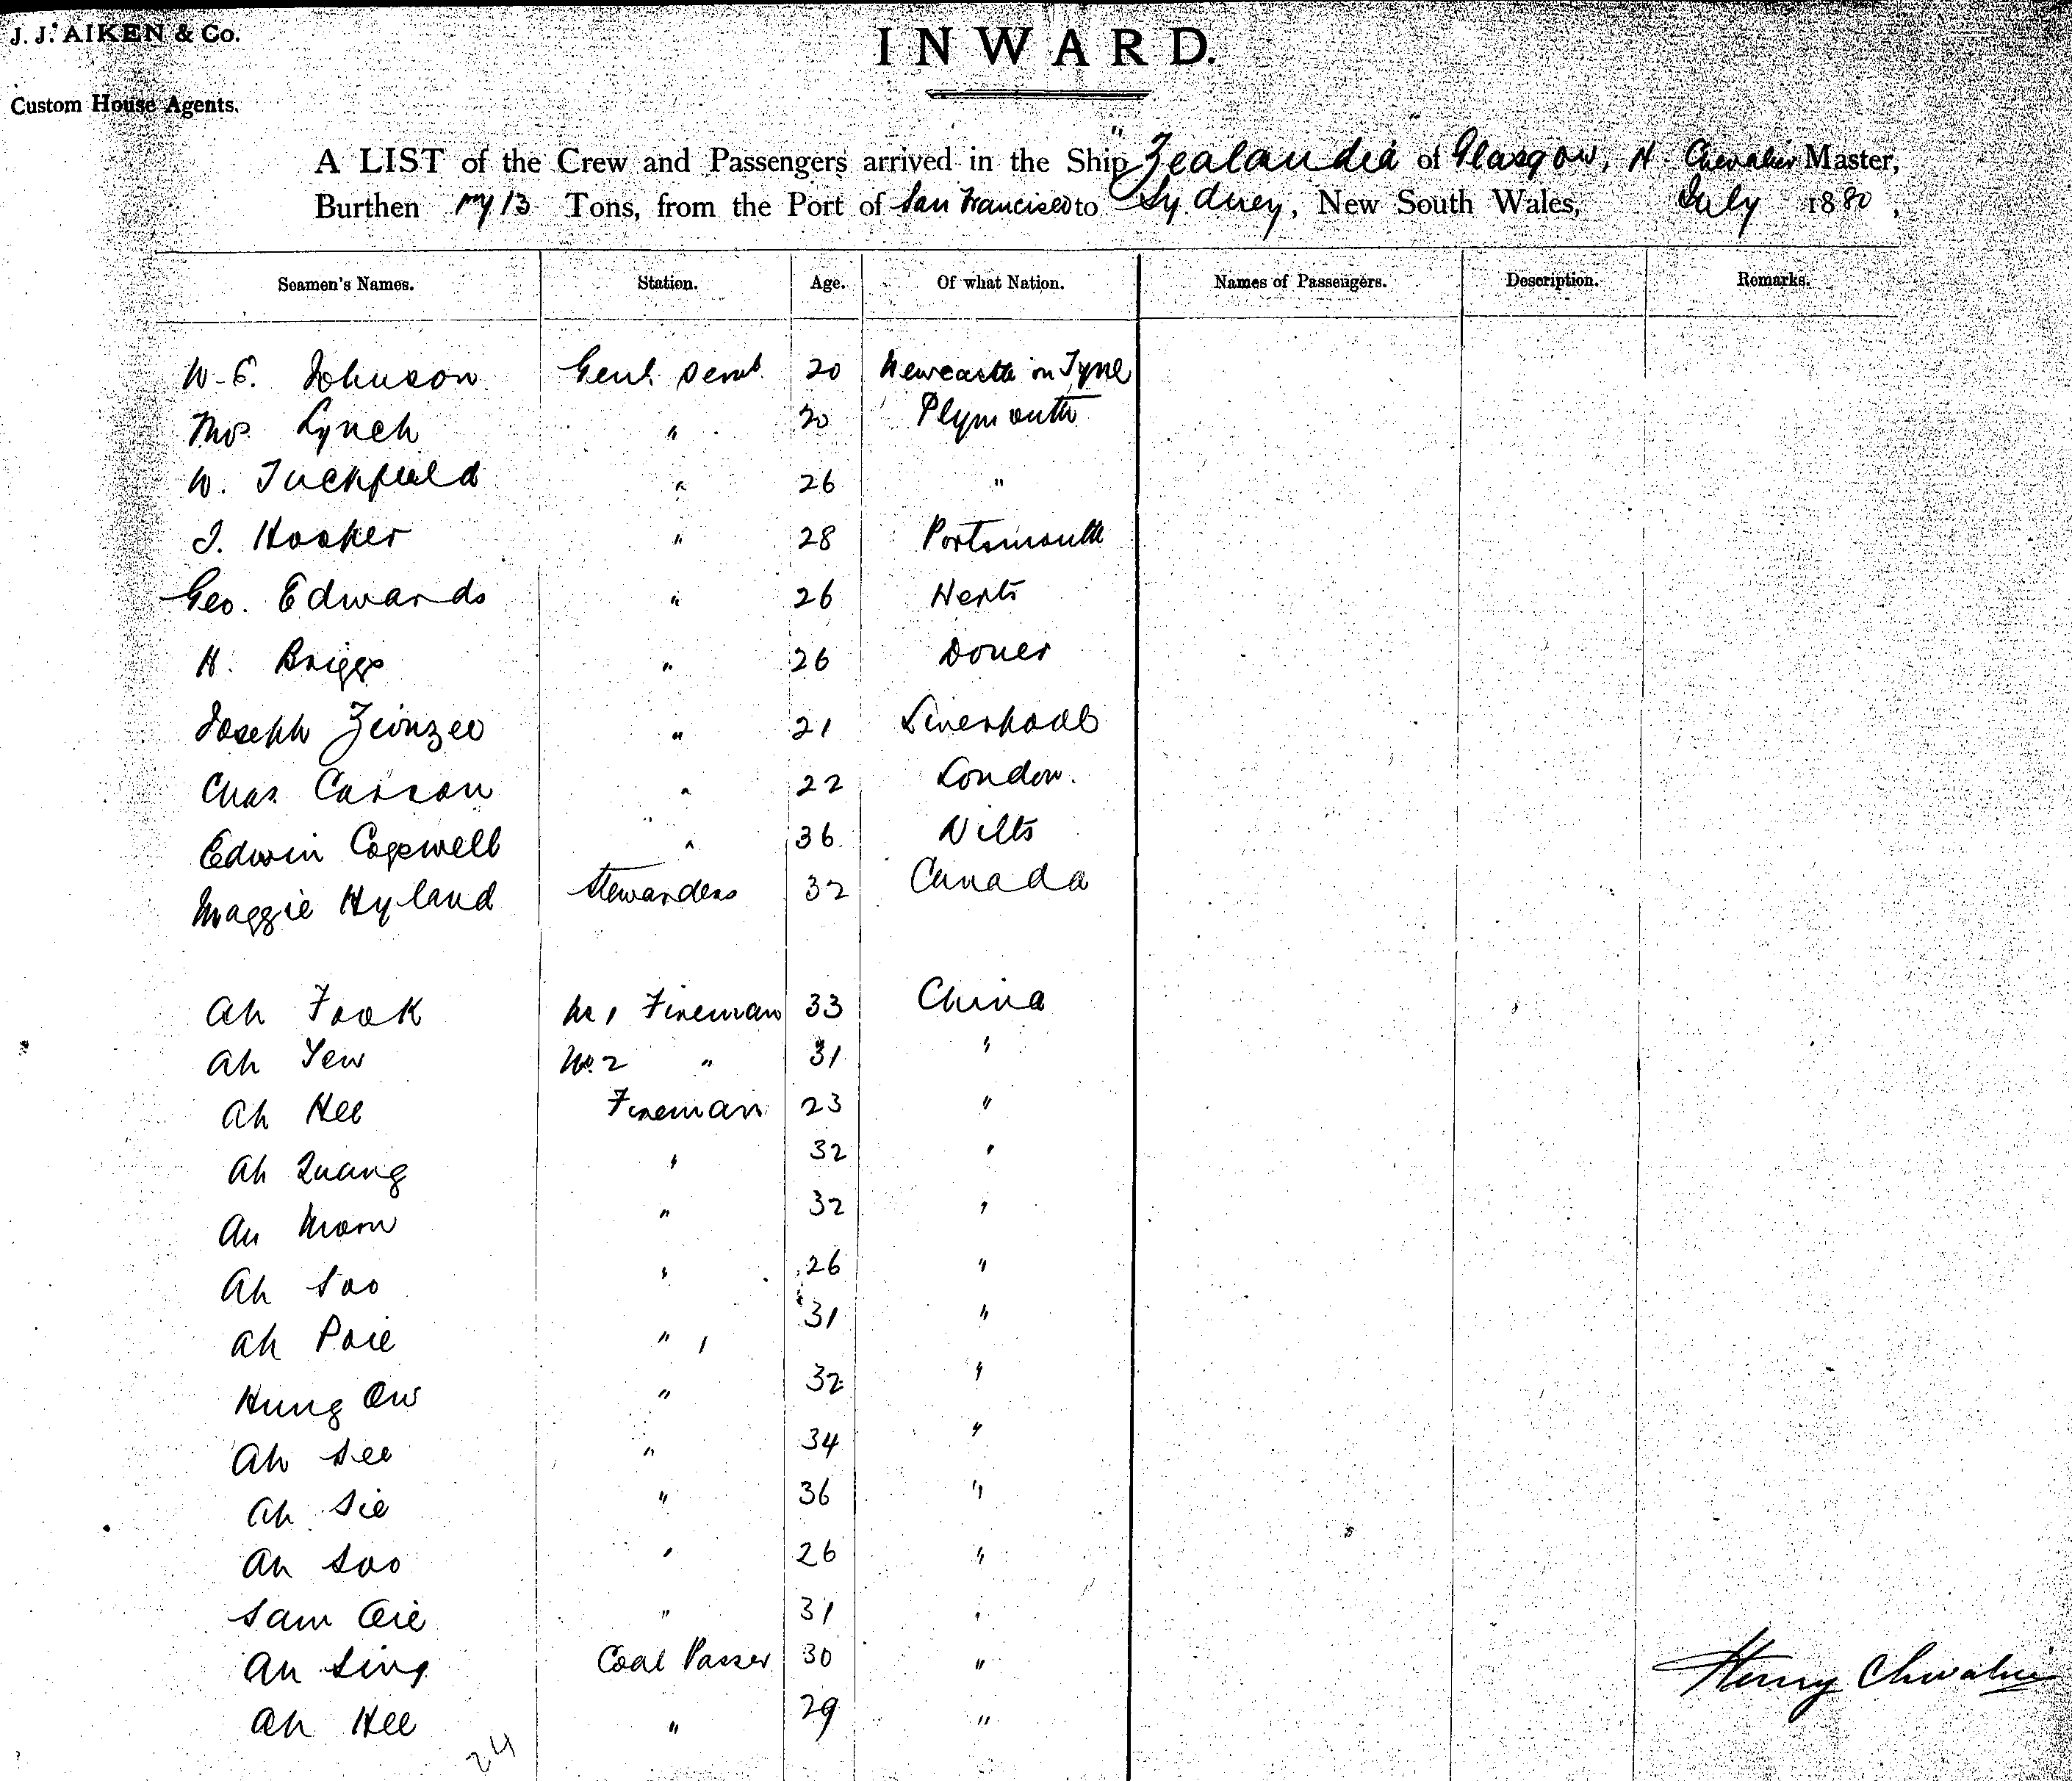 J. J. AIKEN & Co.
Custom House Agents.
INWARD.
A LIST of the Crew and Passengers arrived in the Ship "Zealandia" of Glasgow, H. Chevalier Master,
Burthen Tons, from the Port of San Francisco to Sydney, New South Wales, July 1880,
Seamen's Names. Station. Age. Of what Nation. Names of Passengers. Description. Remarks.
W. E. Johnson Genl. Servt. 20 Newcastle on Tyne
Thos. Lynch " 20 Plymouth
W. Tuckfield " 26 "
J. Hooker " 28 Portsmouth
Geo. Edwards " 26 Herts
H. Briggs " 26 Dover
Joseph " 21 Liverpool
Chas. Carson " 22 London.
Edwin Cogswell " 36 Wilts
Maggie Hyland Stewardess 32 Canada
Ah Fook No 1 Fireman 33 China
Ah Yew No. 2 " 31 "
Ah Hee Fireman 23 "
Ah Quang " 32 "
Ah Mow " 32 "
Ah Soo " 26 "
Ah Poie " 31 "
Hung Ow " 32 "
Ah See " 34 "
Ah Sie " 36 "
Ah Soo " 26 "
Sam Oie " 31 "
Ah Sing Coal Passer 30 "
Ah Hee " 29 "
24
Henry Chevalier